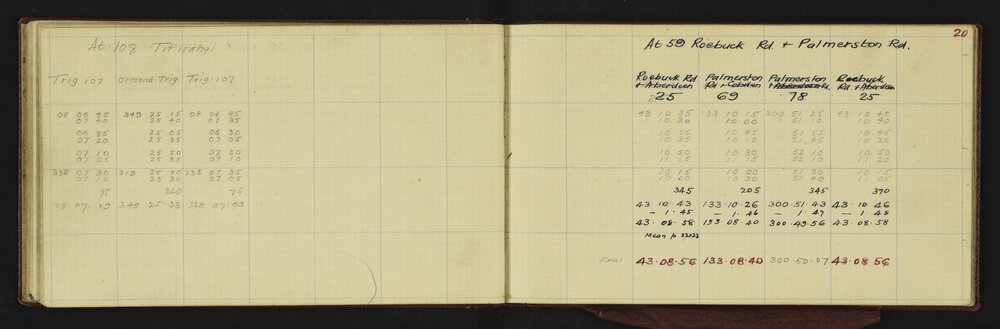 At 108 Titirangi
Trig 107 Ormond Trig Trig 107
08 06 45 349 25 15 08 06 45
07 40 25 40 07 35
06 55 25 05 06 30
07 20 25 35 07 05
07 10 25 50 07 30
07 05 25 35 07 10
338 07 30 319 25 50 338 07 35
07 10 25 30 07 05
75 260 75
08 07 09 349 25 33 338 07 09
20
At 59 Roebuck Rd. + Palmerston Rd.
Roebuck Rd Palmerston Palmerston Roebuck
+ Aberdeen Rd + Cobden + Aberdeen Rd. Rd. + Aberdeen
25 69 78 25
43 10 35 133 10 15 300 51 25 43 10 45
10 30 10 00 51 10 10 40
10 55 10 45 51 55 10 45
10 35 10 10 51 45 10 30
10 50 10 30 52 10 10 50
11 15 11 15 52 10 11 20
10 15 10 00 51 30 10 15
10 50 10 30 51 40 11 05
345 205 345 390
43·10·43 133·10·26 300·51·43 43·10·46
– 1·45 – 1·46 – 1·47 – 1·48
43·08·58 133·08·40 300·49·56 43·08·58
Mean p
Final 43·08·56 133·08·40 300·50·07 43·08·56